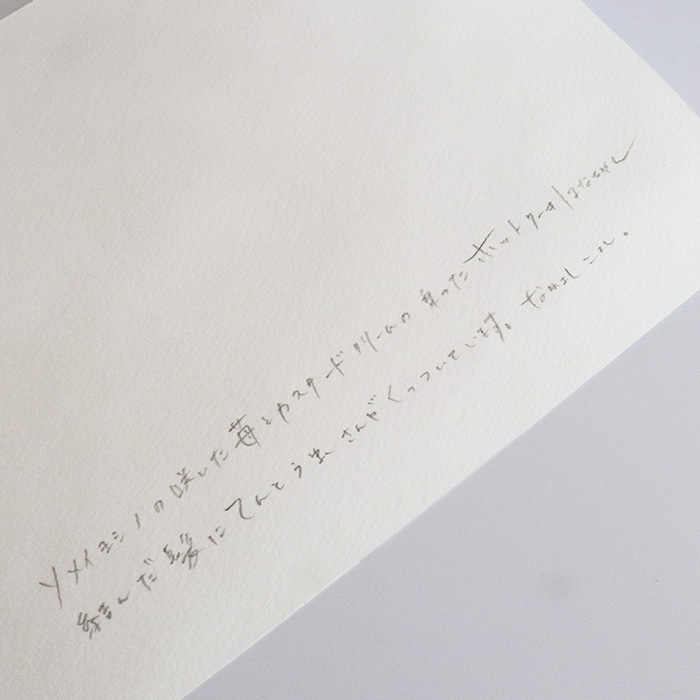 ソメイヨシノの咲いた苺とカスタードクリームの乗ったホットケーキはだちゃん
結んだ髪にてんとう虫さんがくっついています。